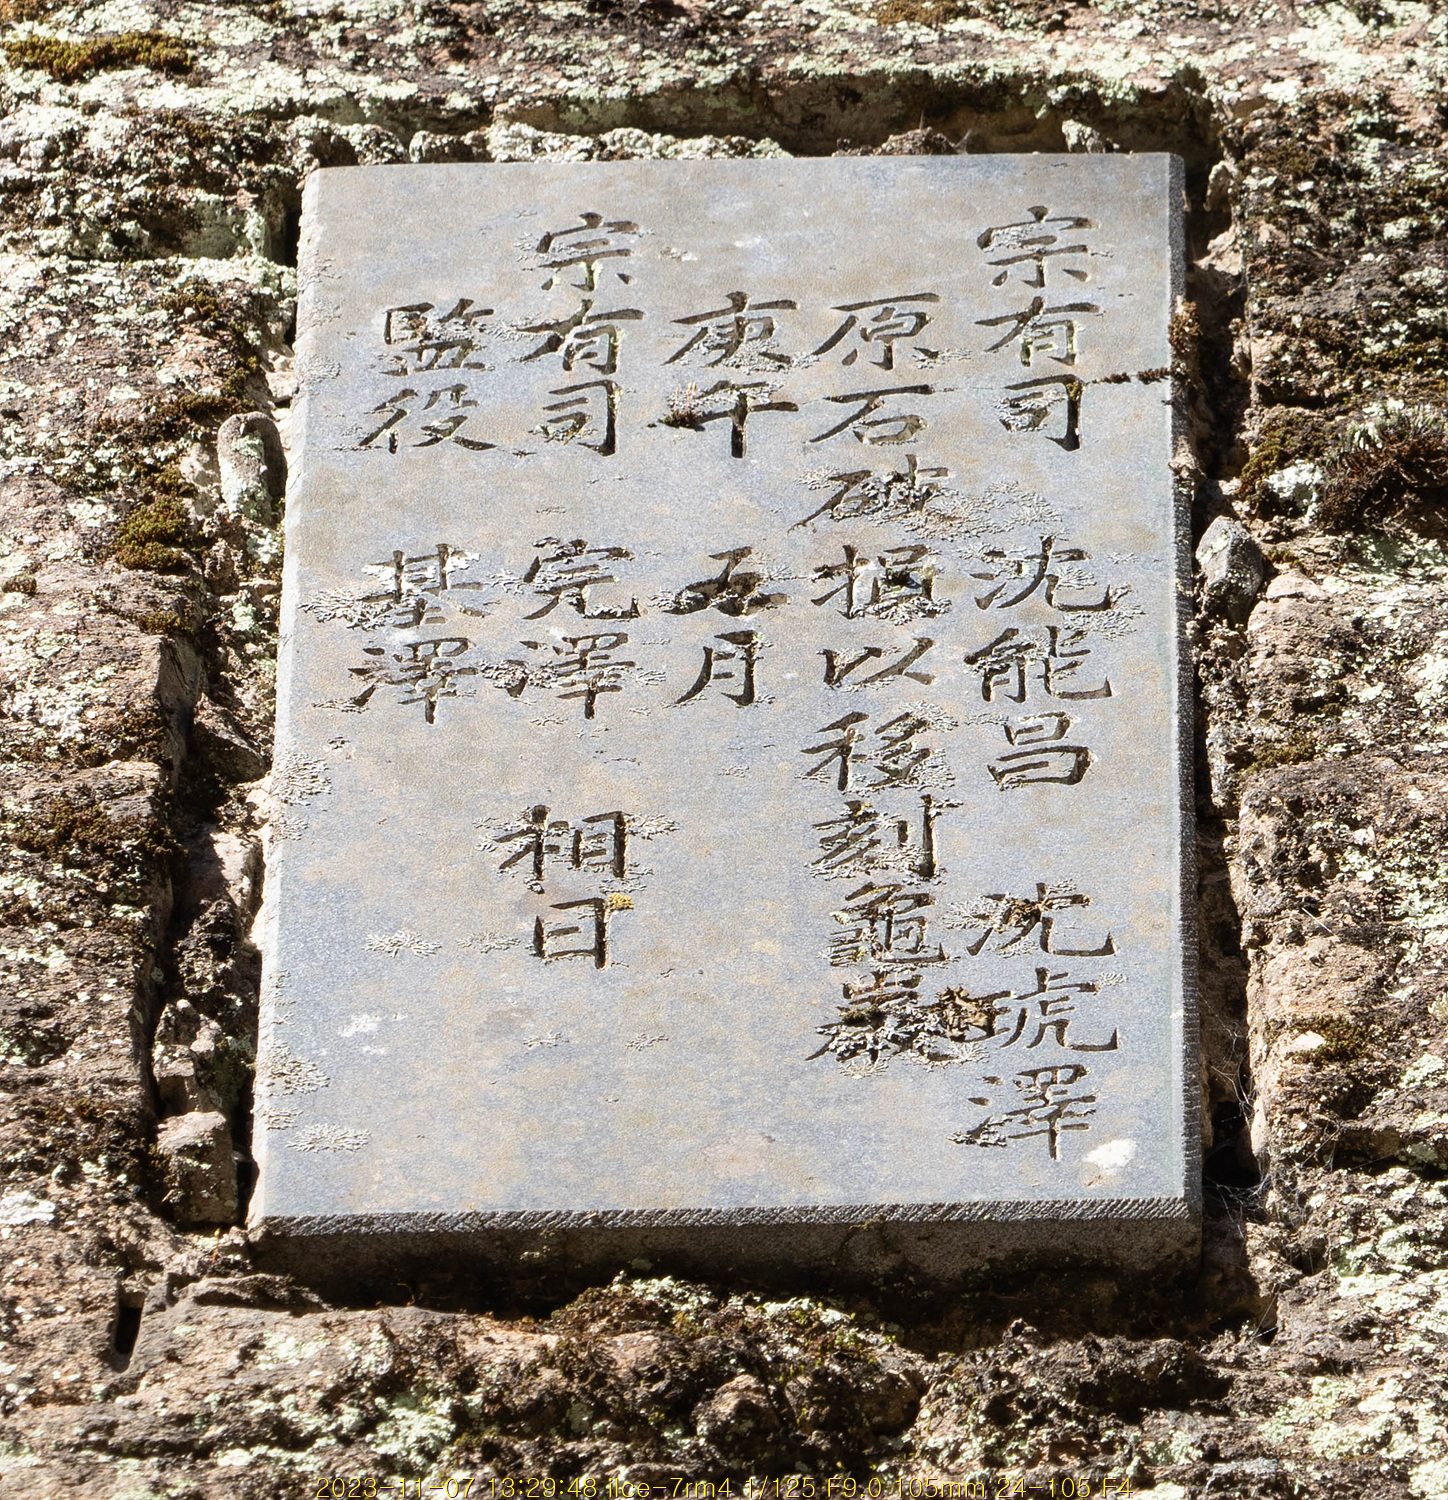 宗有司 沈能昌 沈琥澤
原石破損以移刻龜巖
庚午 五月
宗有司 完澤 相日
監役 基澤
2023-11-07 13:29:48 ilce-7rm4 1/125 F9.0 105mm 24-105 F4